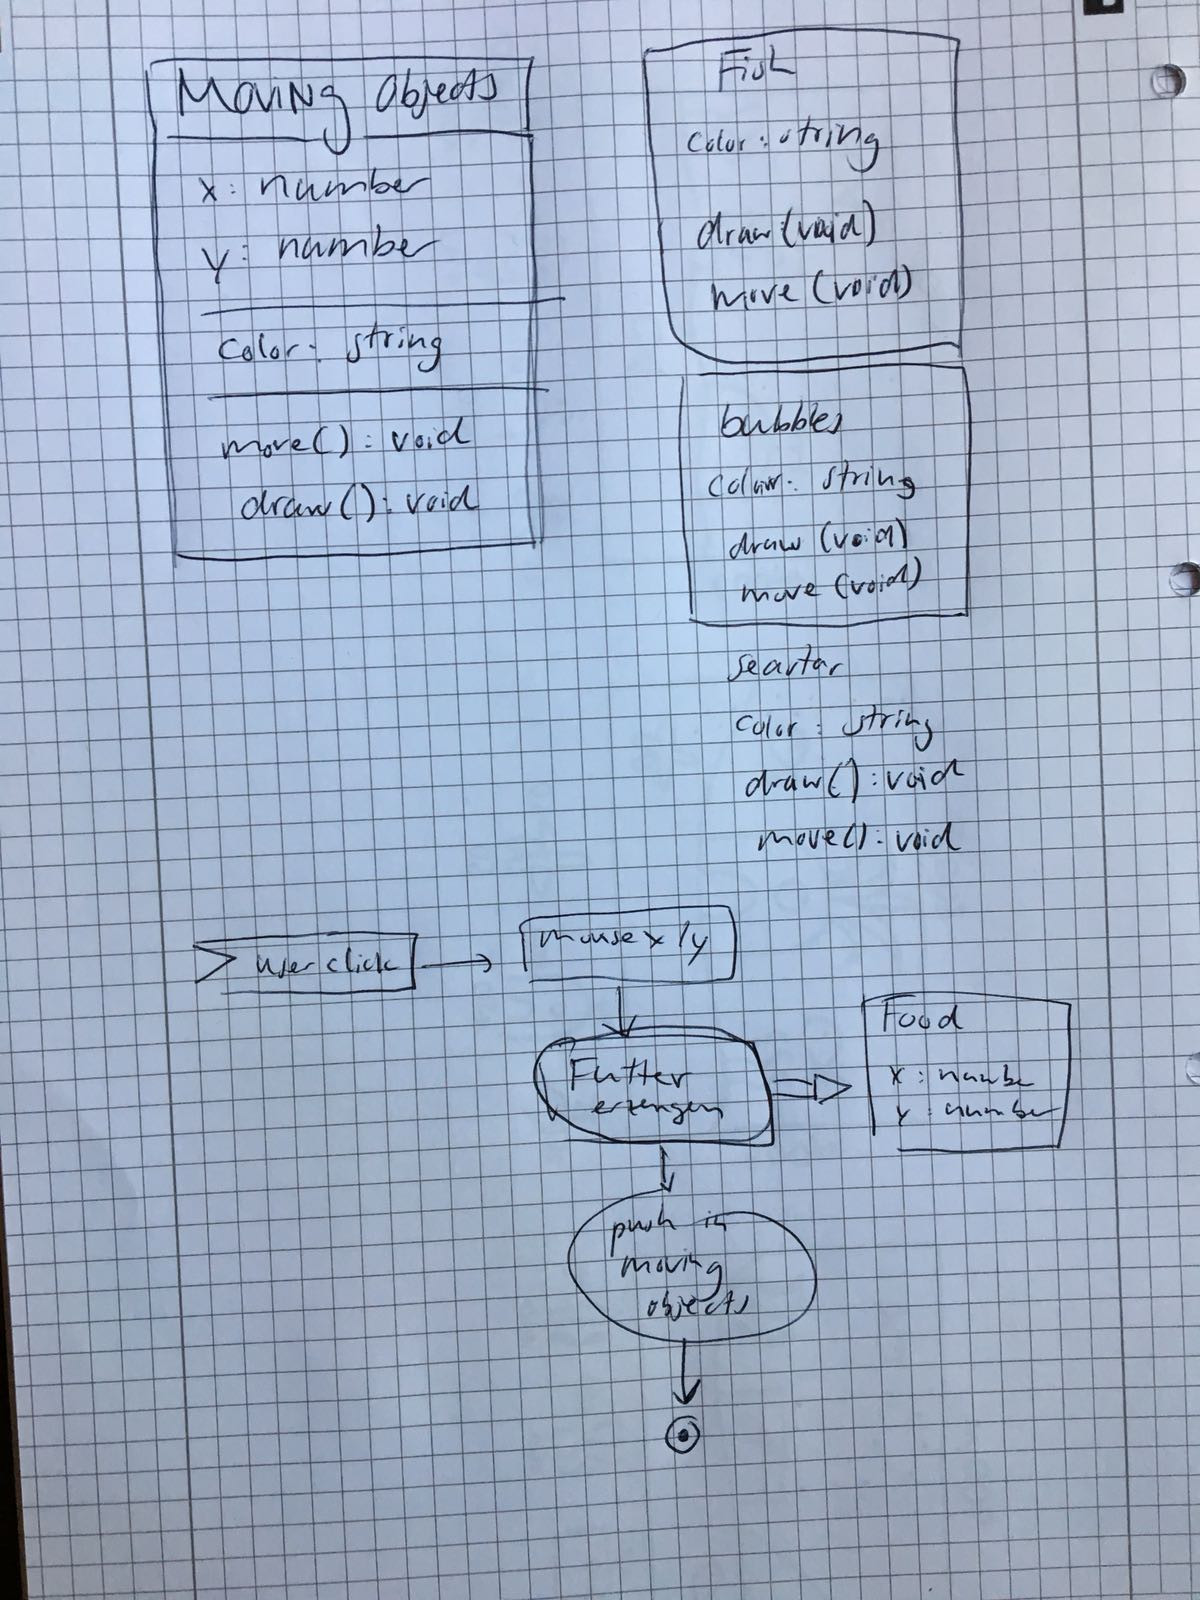 Moving Objects
x: number
y: number
color: string
move(): void
draw(): void
Fish
color: string
draw(void)
move(void)
bubbles
color: string
draw(void)
move(void)
seastar
color: string
draw(): void
move(): void
user click
mouse x/y
Futter
erzeugen
Food
x: numbe
y: number
push in
moving
objects